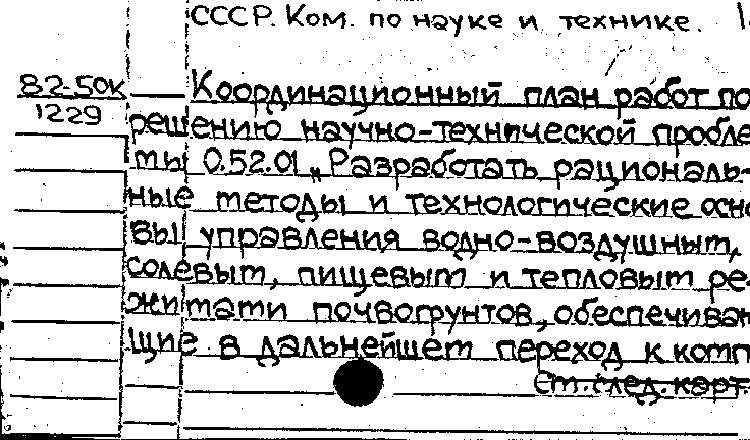 СССР. Ком. по науке и технике.
82-50к
1229
Координационный план работ по
решению научно-технической пробле
мы 0.52.01 „Разработать рациональ-
ные методы и технологические осно
вы управления водно-воздушным,
солевым, пищевым и тепловым ре-
жимами почвогрунтов, обеспечиваю
щие в дальнейшем переход к комп
См. след. карт.